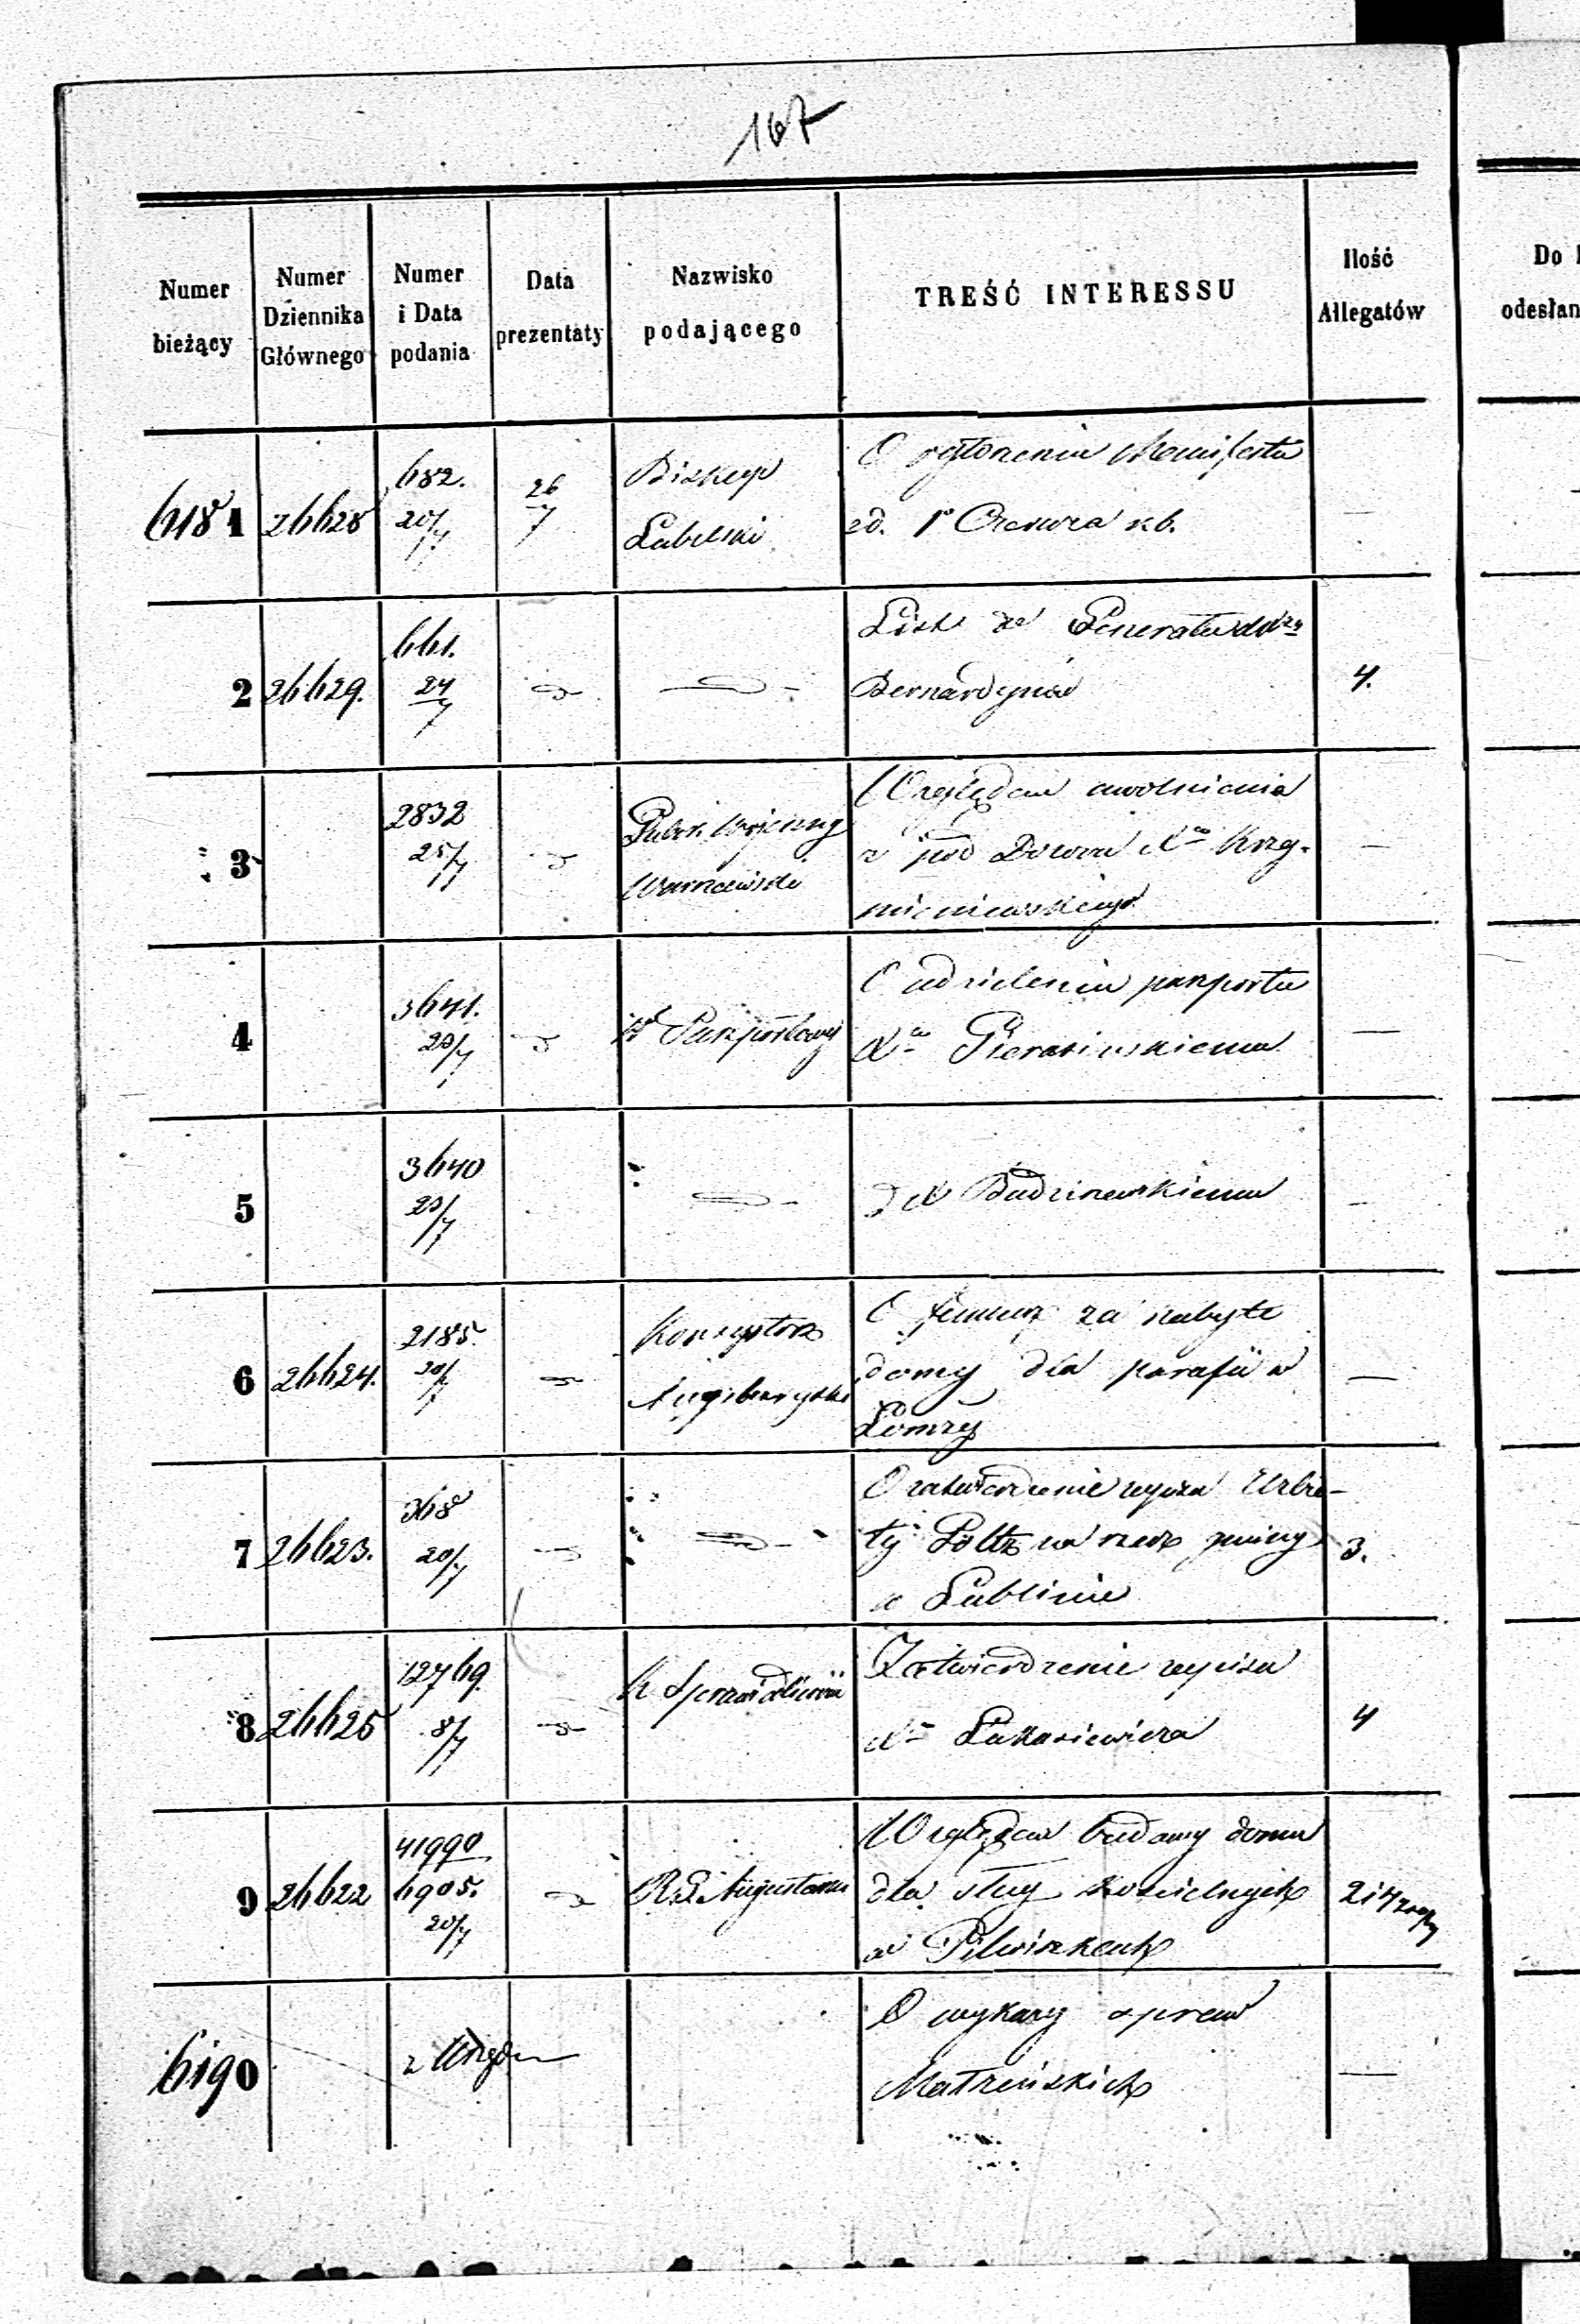 167
Numer bieżący
Numer Dziennika Głównego
Numer i Data podania
Data prezentaty
Nazwisko podającego
TREŚĆ INTERESSU
Ilość Allegatów
Do
odesłan
6181 26628 682. 20/7 26/7 Biskup Lubelski
O ogłoszeniu Manifestu
zd. 1o Czerwca rb. —
2 26629. 661. 24/7
List do Generała
Bernardynów 4.
3 2832 25/7 Wojenny Warszawski
Względem uwolnienia
z pod Dozoru Xa Krzy-
mieniewskiego —
4 3641. 20/7 Paszportowy
O udzieleniu paszportu
Xu —
5 3640 20/7
d X Budziszewskiemu —
6 26624. 2185. 20/7 Konsystorz Augsburgski
O fundusz za nabyte
domy dla parafii w
Łomży —
7 26623. 368 20/7
O zatwierdzenie wyboru
ty Poltz na rzecz gminy
w Lublinie 3.
8 26625 12769. 8/7 K Sprawiedliwości
Zatwierdzenie wypisu
Xa Łukasiewicza 4
9 26622 41990 6905. 20/7 R.G. Augustows
Względem budowy domu
dla sług kościelnych
w Pilwiszkach 2 i 4
6190 z Urzędu
O wykazy spraw
Małżeńskich —